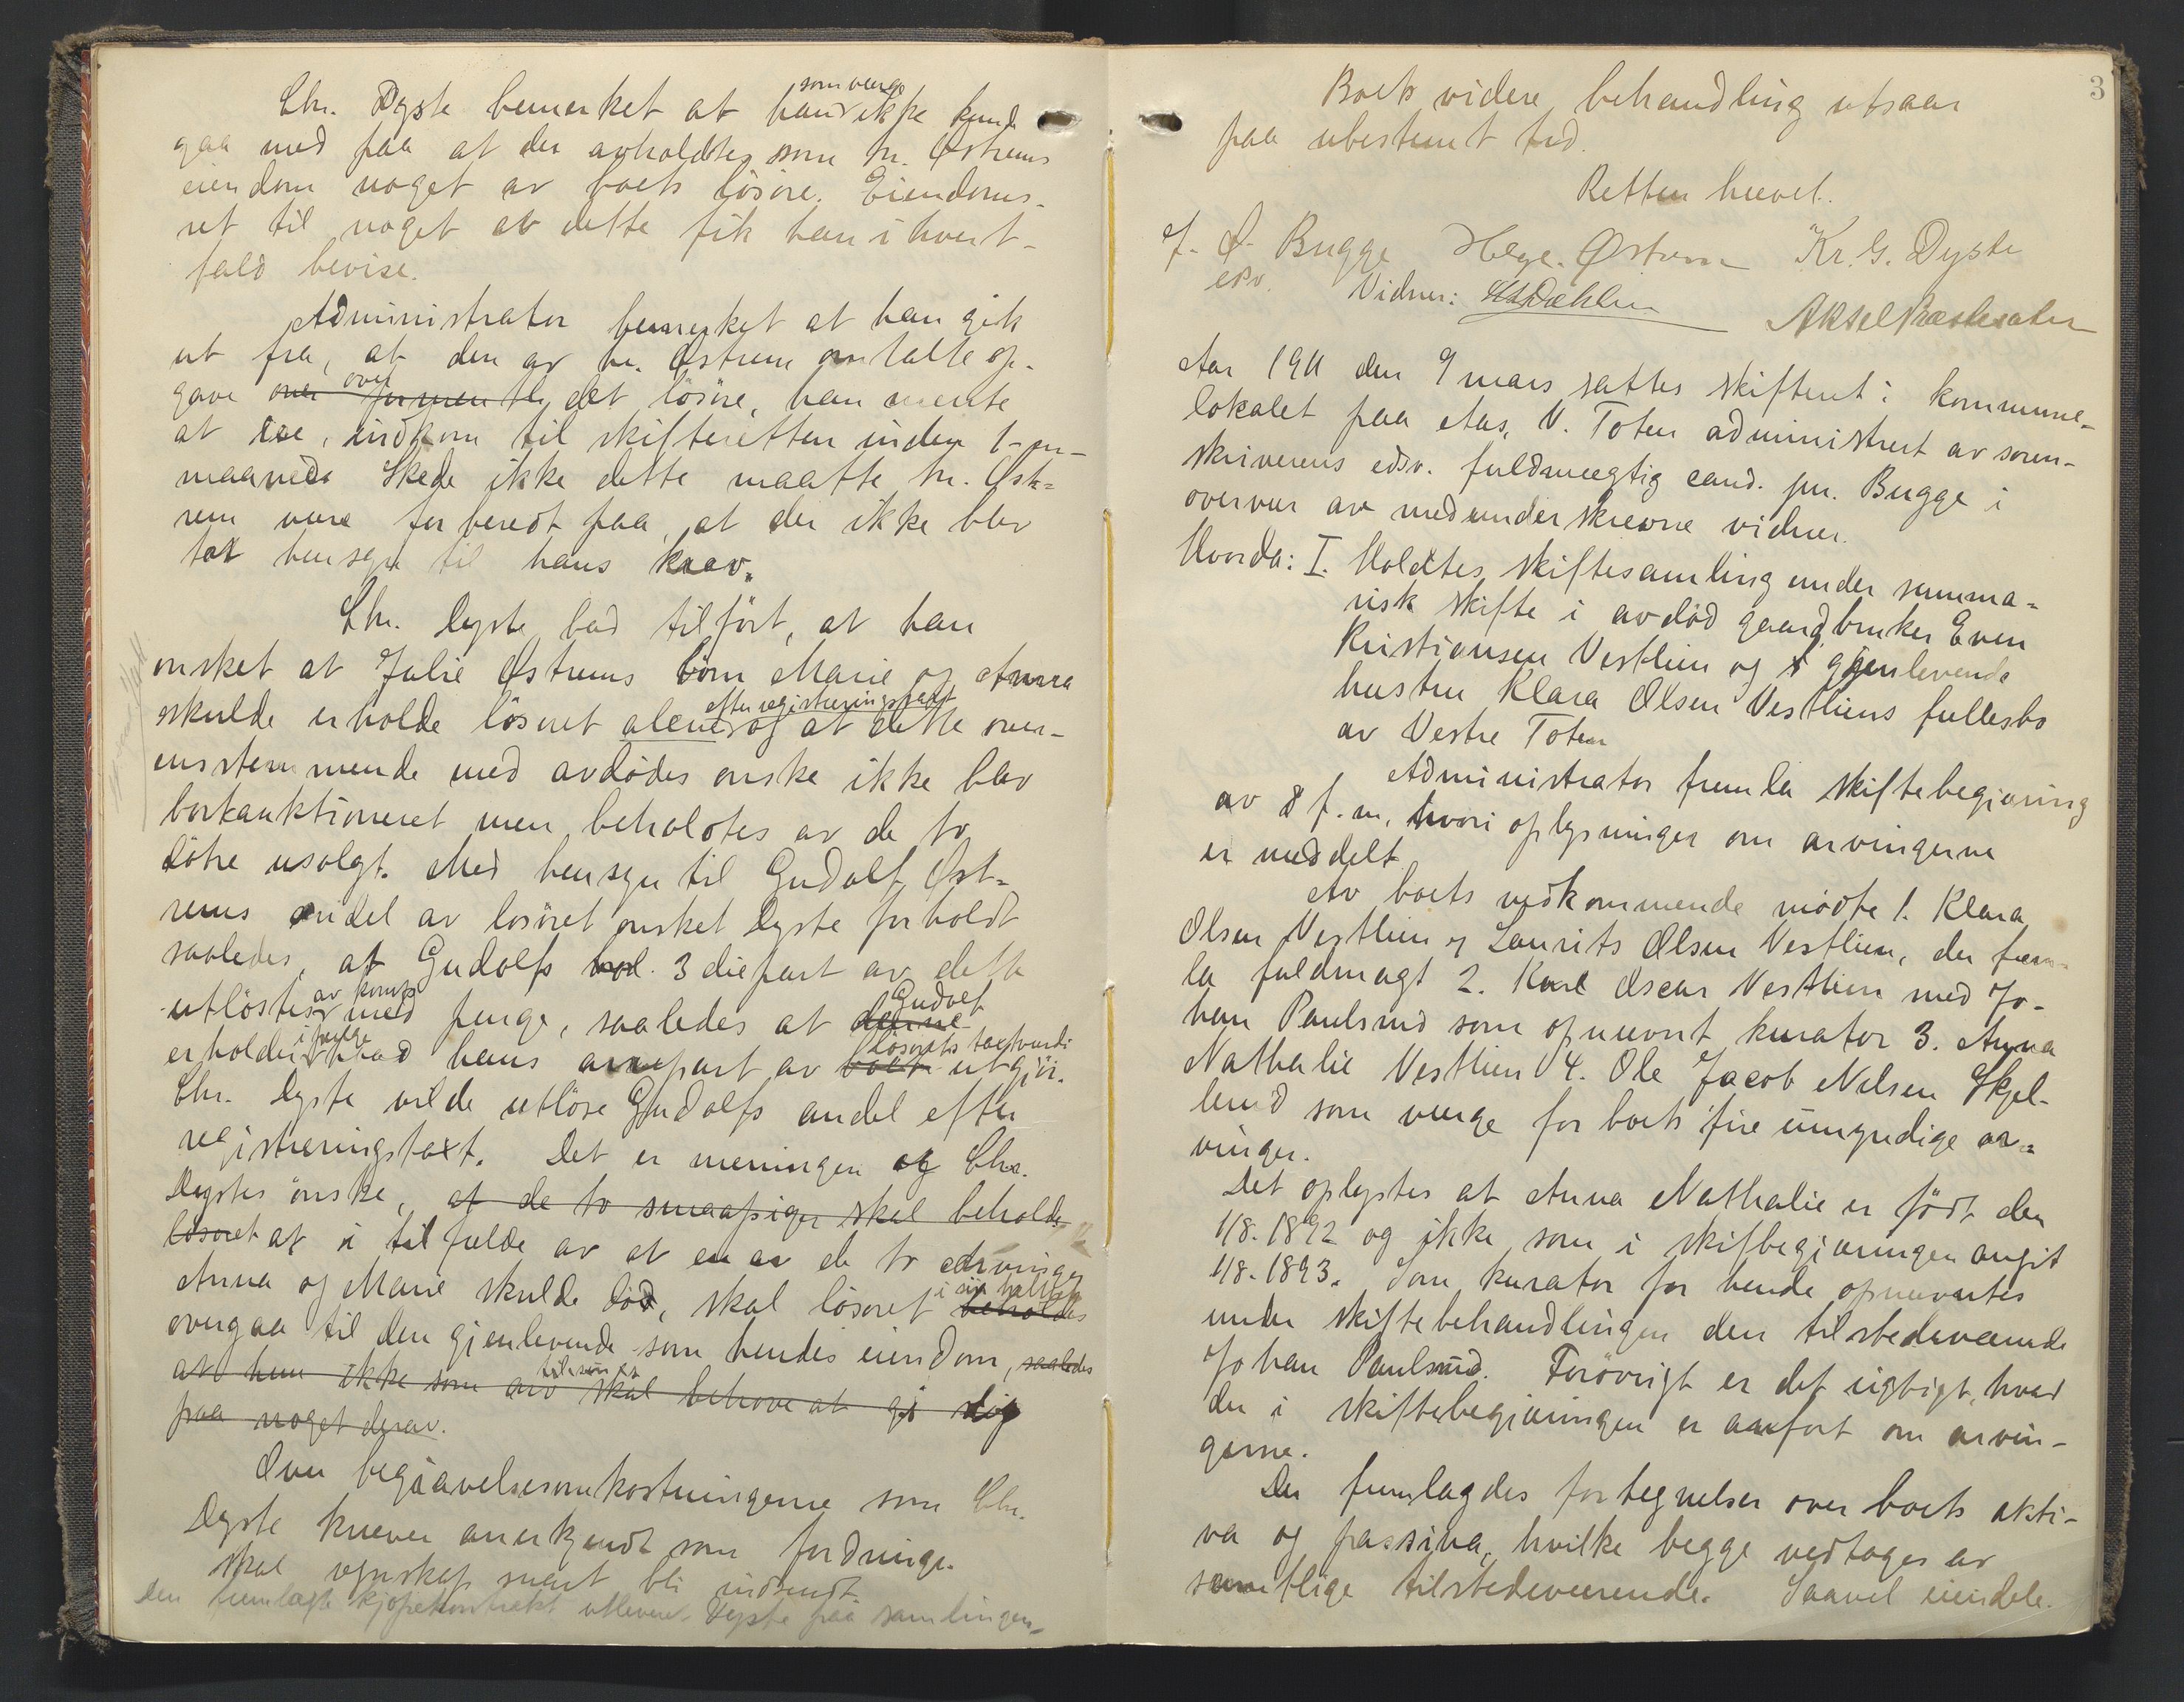 som verge
Chr. Dyste bemerket at han ikke kunde
gaa med paa at der avholdtes som hr. Østrems
eiendom noget av boets løsøre. Eiendoms-
ret til noget av dette fik han i hvert-
fald bevise.
Administrator bemerket at han gik
ut fra, at den av hr. Østrem omtalte op-
over
gave over det løsøre, han mente
at eie, indkom til skifteretten inden 1-en-
maaned. Skede ikke dette maatte hr. Øst-
rem være forberedt paa, at der ikke blev
tat hensyn til hans krav.
Chr. Dyste bad tilført, at han
ønsket at Julie Østrems börn Marie og Anna
efter registreringstaxt
skulde erholde løsøret alene og at dette over-
ensstemmende med avdødes ønske ikke blev
bortauktioneret men beholdtes av de to
døtre usolgt. Med hensyn til Gudolf Øst-
rems andel av løsøret ønsket Dyste forholdt
saaledes, at Gudolfs 3 diepart av dette
av komp
utløstes med penge, saaledes at denne Gudolf
i penge løsørets taxtverdi
erholder hvad hans arvepart av boet utgjör.
Chr. Dyste vilde utløse Gudolfs andel efter
registreringstaxt. Det er meningen og Chr.
Dystes ønske, at de to smaapiger skal beholde
løsøret at i tilfælde av at en av de to arvinger
i sin helhet
Anna og Marie skulde dö, skal løsøret beholdes
overgaa til den gjenlevende som hendes eiendom, saaledes
at hun ikke som arv skal behøve at gi slip
paa noget derav.
Over begravelsesomkostningerne som Chr.
Dyste krever anerkjendt som fordringe.
skal regnskap snart bli indsendt.
Den fremlagte kjøpekontrakt utleveret Dyste paa samlingen.
3
Boets videre behandling utsaaes
paa ubestemt tid.
Retten hævet.
J. Ø. Bugge Helge. Østrem Kr. G. Dyste
edsv. Vidner: HDæhlen Aksel Præstesæter
Aar 1911 den 9 mars sattes skifteret i kommune-
lokalet paa etas, V. Toten administrert av soren-
skriverens edsv. fuldmægtig cand. jur. Bugge i
overvær av medunderskrevne vidner.
Hvorda: I. Holdtes skiftesamling under summa-
risk skifte i avdød gaardbruker Even
Kristiansen Vestlien og gjenlevende
hustru Klara Olsen Vestliens fællesbo
av Vestre Toten
Administrator fremla skiftebegjæring
av 8 f. m., hvori oplysninger om arvingerne
er meddelt
Av boets vedkommende mødte 1. Klara
Olsen Vestlien og Laurits Olsen Vestlien, der frem-
la fuldmagt 2. Karl Oscar Vestlien med Jo-
han Paulsrud som opnævnt kurator 3. Anna
Nathalie Vestlien 4. Ole Jacob Nelsen Skjel-
lerud som verge for boets fire umyndige ar-
vinger.
Det oplystes at Anna Nathalie er født den
1/8. 1892 og ikke som i skiftebegjæringen angit
1/8. 1893. Som kurator for hende opnævntes
under skiftebehandlingen den tilstedeværende
Johan Paulsrud. Forøvrigt er det rigtigt, hvad
der i skiftebegjæringen er anført om arvin-
gerne.
Der fremlagdes fortegnelser over boets akti-
va og passiva, hvilke begge vedtoges av
samtlige tilstedeværende. Saavel eiendele